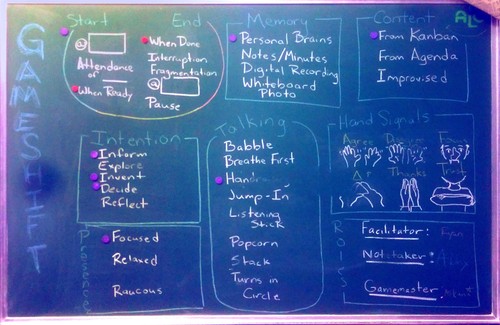 GAMESHIFT
Start
End
@
Attendance
of
When Ready
When Done
Interruption
Fragmentation
@
Pause
Memory
Personal Brains
Notes/Minutes
Digital Recording
Whiteboard
Photo
Content
From Kanban
From Agenda
Improvised
Intention
Inform
Explore
Invent
Decide
Reflect
Focused
Relaxed
Raucous
Talking
Babble
Breathe First
Jump-In
Listening
Stick
Popcorn
Stack
Turns in
Circle
Hand Signals
Agree
Thanks
Roles
Facilitator:
Notetaker:
Gamemaster: